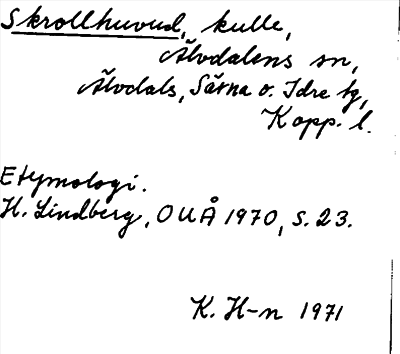 Skrollhuvud, kulle,
Älvdalens sn,
Älvdals, Särna o. Idre tg,
Kopp. l.
Etymologi.
H. Lindberg, OUÅ 1970, s. 23.
K. H-n 1971